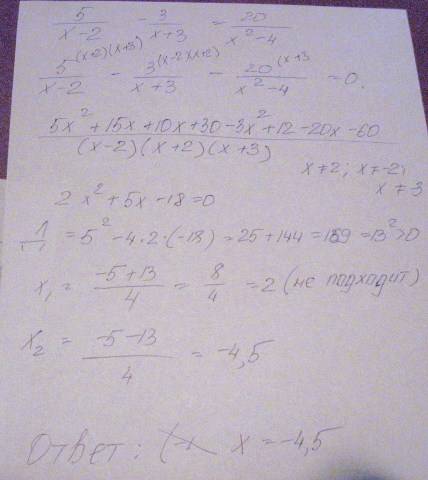 5/(x-2) - 3/(x+3) = 20/(x²-4)
5^((x+2)(x+3))/(x-2) - 3^((x-2)(x+2))/(x+3) - 20^((x+3)/(x²-4) = 0.
(5x²+15x+10x+30-3x²+12-20x-60)/((x-2)(x+2)(x+3))
x≠2; x≠-2;
x≠-3
2x²+5x-18=0
= 5²-4·2·(-18) = 25+144 = 169 = 13²>0
x₁ = (-5+13)/4 = 8/4 = 2 (не подходит)
x₂ = (-5-13)/4 = -4,5
Ответ: x = -4,5